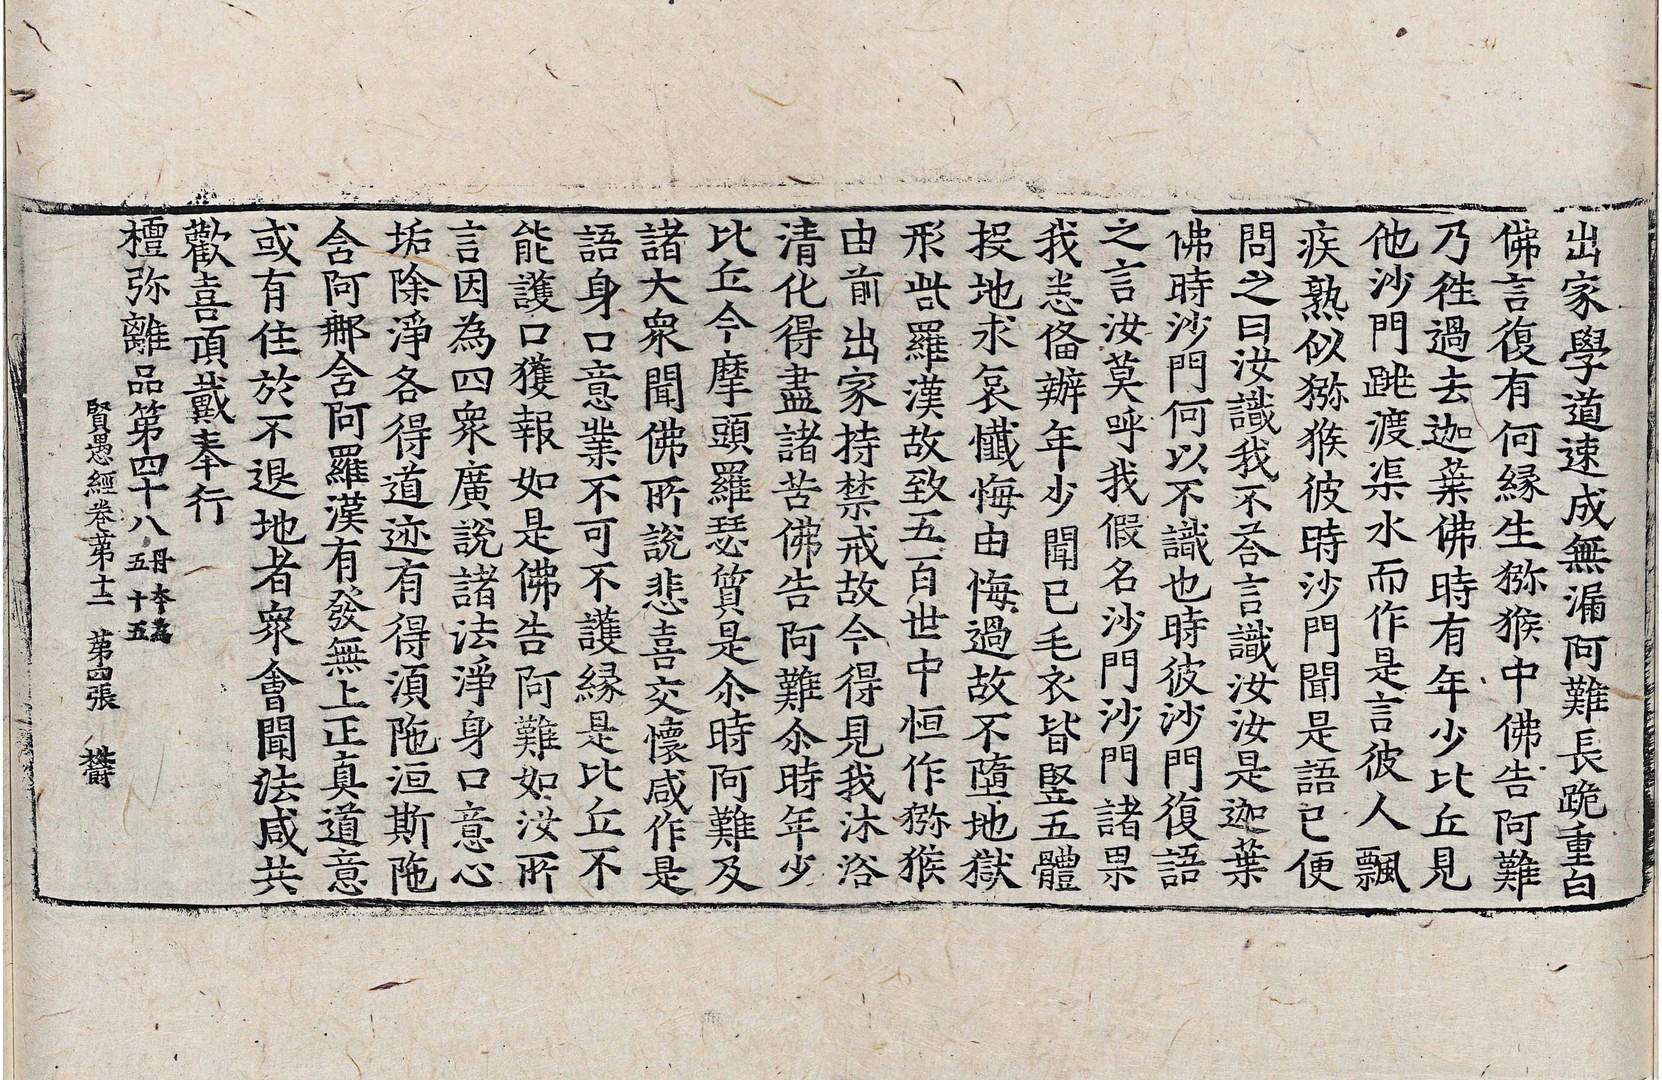 出家學道速成無漏阿難長跪重白
佛言復有何緣生獼猴中佛告阿難
乃徃過去迦葉佛時有年少比丘見
他沙門跳渡渠水而作是言彼人飄
疾熟似獼猴彼時沙門聞是語已便
問之曰汝識我不荅言識汝汝是迦葉
佛時沙門何以不識也時彼沙門復語
之言汝莫呼我假名沙門沙門諸果
我悉俻辦年少聞已毛衣皆竪五體
投地求哀懺悔由悔過故不墮地獄
形呰羅漢故致五百世中恒作獼猴
由前出家持禁戒故今得見我沐浴
清化得盡諸苦佛告阿難尒時年少
比丘今摩頭羅瑟質是尒時阿難及
諸大衆聞佛所說悲喜交懷咸作是
語身口意業不可不護緣是比丘不
能護口獲報如是佛告阿難如汝所
言因為四衆廣說諸法淨身口意心
垢除淨各得道迹有得須陁洹斯陁
含阿郍含阿羅漢有發無上正真道意
或有住於不退地者衆會聞法咸共
歡喜頂戴奉行
檀弥離品第四十八 丹本為五十五
賢愚經卷苐十二 苐四張 欝